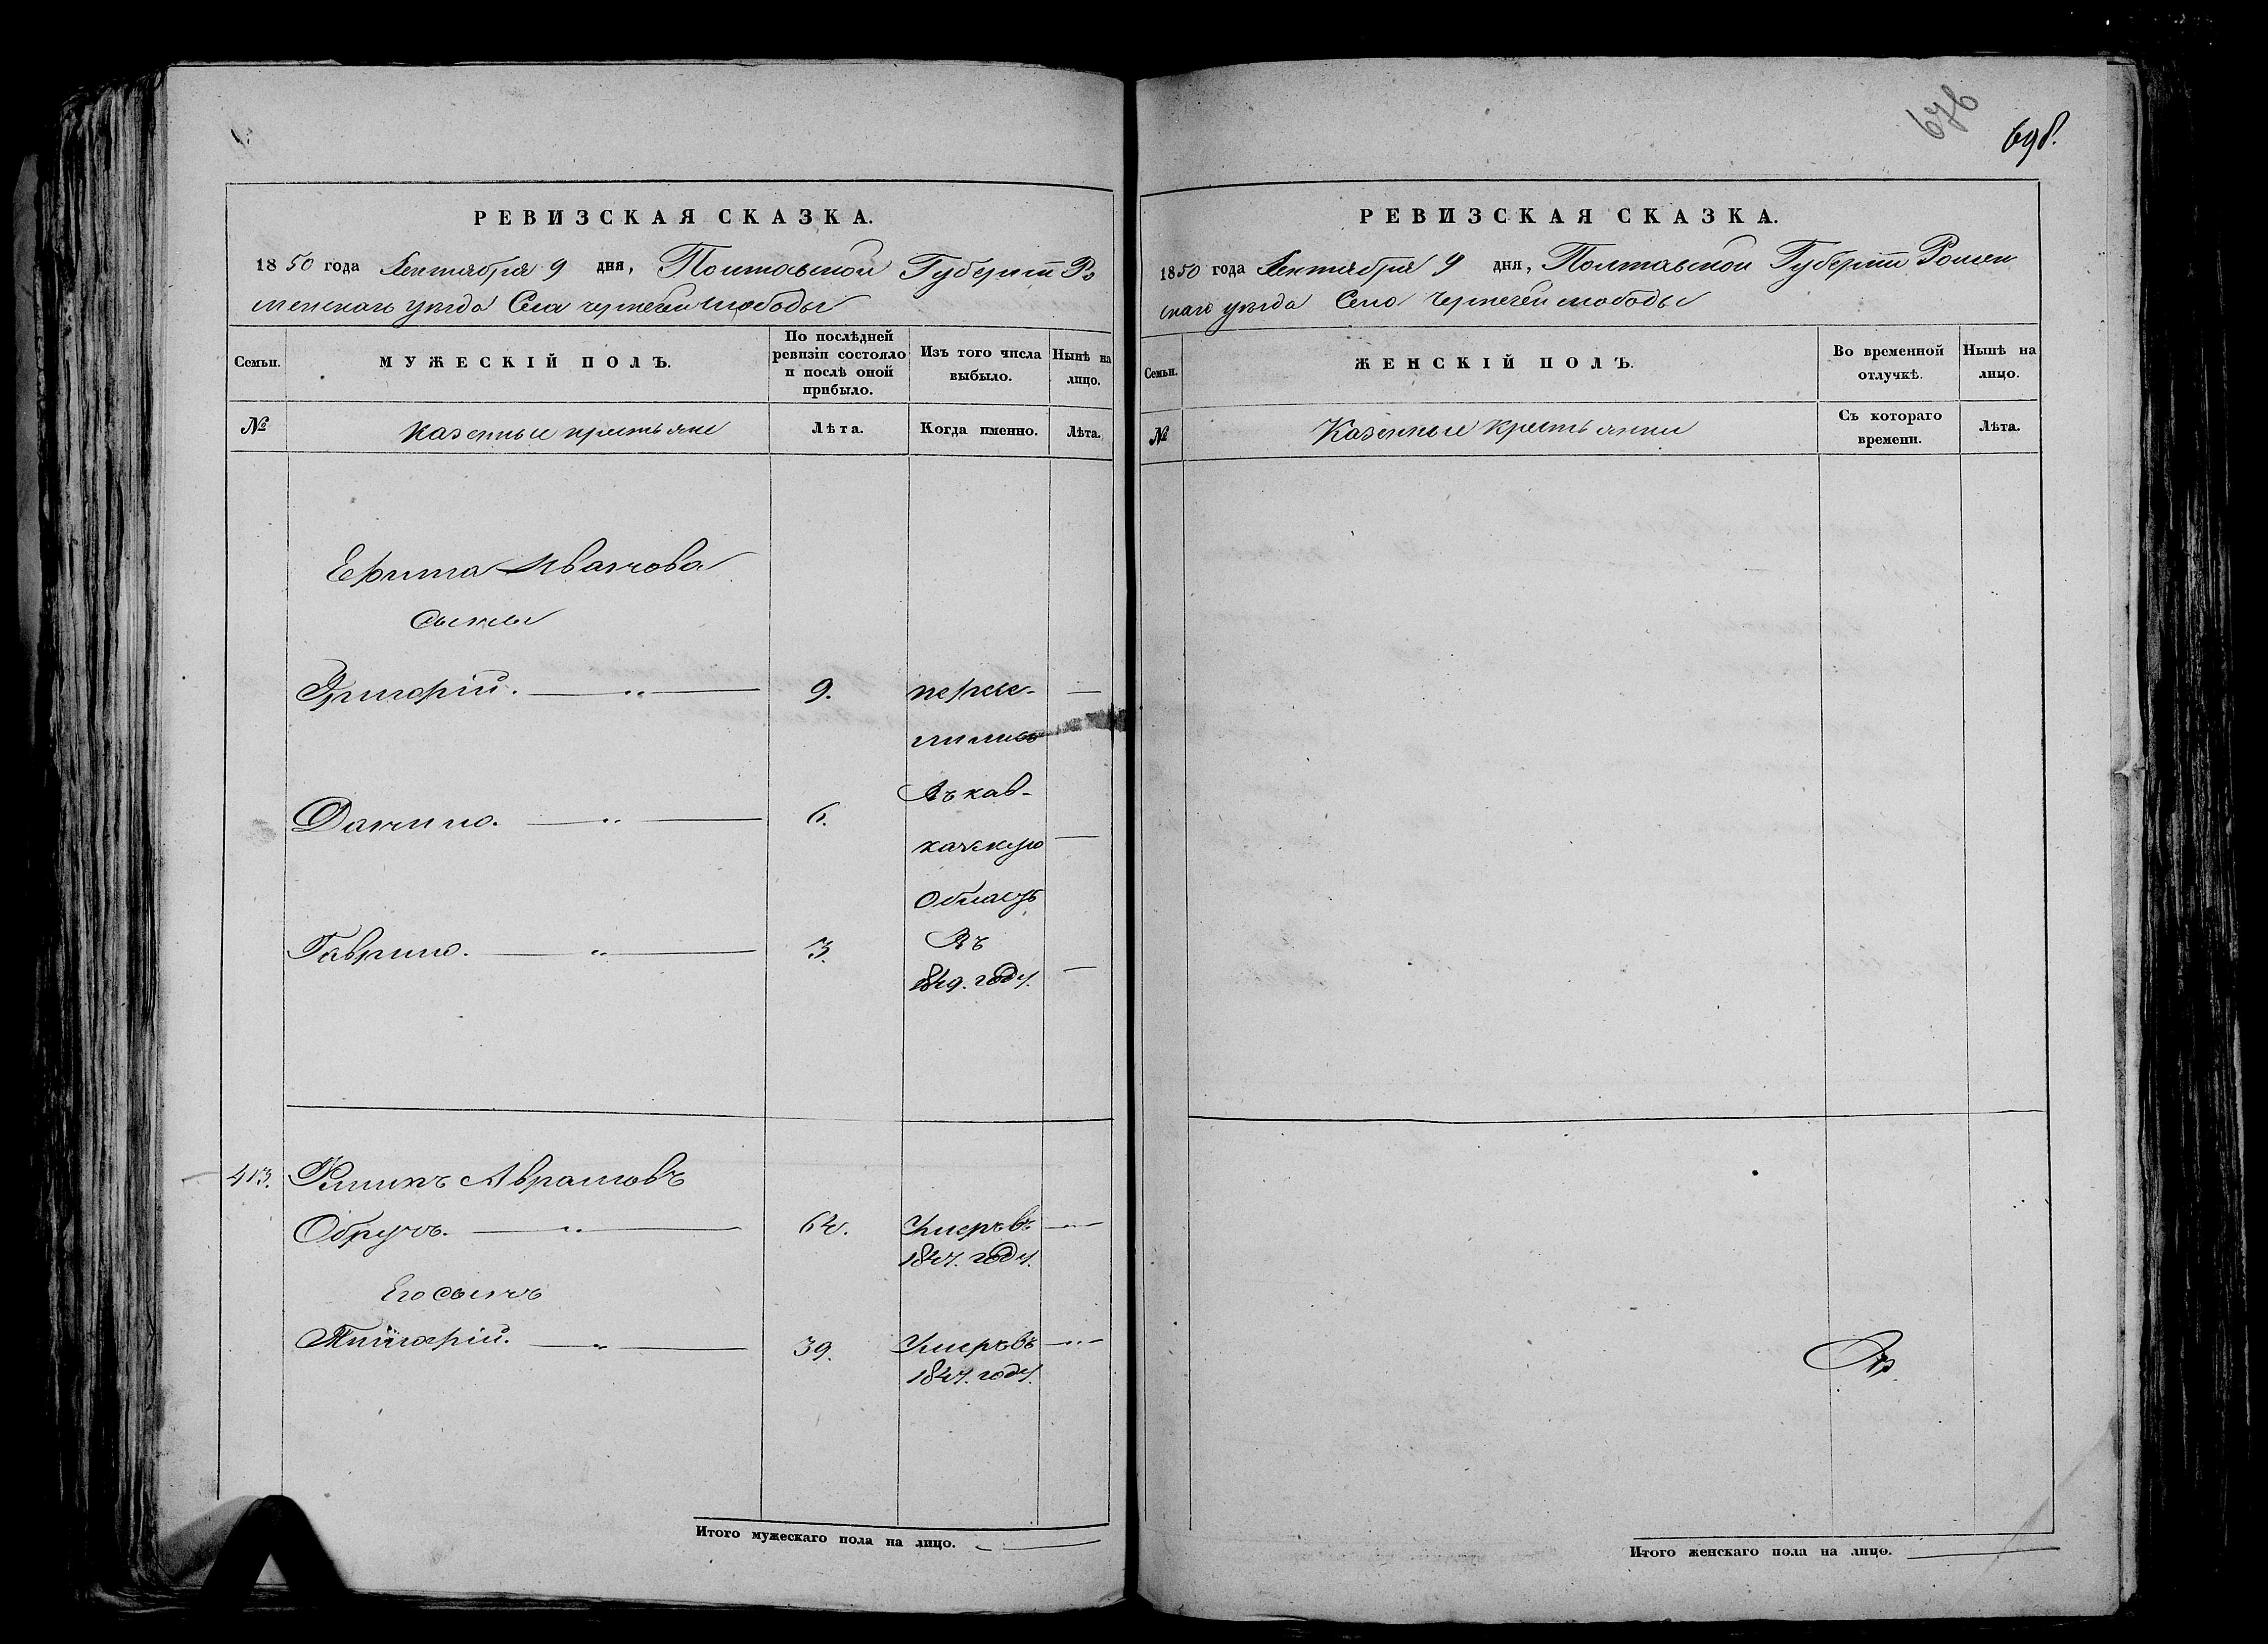 676
698.
РЕВИЗСКАЯ СКАЗКА.
1850 года Сентября 9 дня, Полтавской Губернии Ро
менскаго уезда Села чернечей слободы
Семьи.
МУЖЕСКІЙ ПОЛЪ.
По послѣдней ревизіи состояло и послѣ оной прибыло.
Изъ того числа выбыло.
Нынѣ на лицо.
№
Казенные крестьяне
Лѣта.
Когда именно.
Лѣта.
Ефима Иванова
Сыны
Григорій. — „ — 9. пересе- —
лились
Данило. — „ — 6. въ кав- —
казскую
Область
Гаврило. — „ — 3. въ —
1849. году.
413. Аврамовъ
Обручъ. — „ — 64. Умеръ въ —
1847. году.
Его сынъ
Григорій. — „ — 39. Умеръ въ —
1847. году.
Итого мужескаго пола на лицо. —
РЕВИЗСКАЯ СКАЗКА.
1850 года Сентября 9 дня, Полтавской Губернии Ромен
скаго уезда Село Чернечей слободы
Семьи.
ЖЕНСКІЙ ПОЛЪ.
Во временной отлучкѣ.
Нынѣ на лицо.
№
Казенные Крестьянки
Съ котораго времени.
Лѣта.
Итого женскаго пола на лицо. —